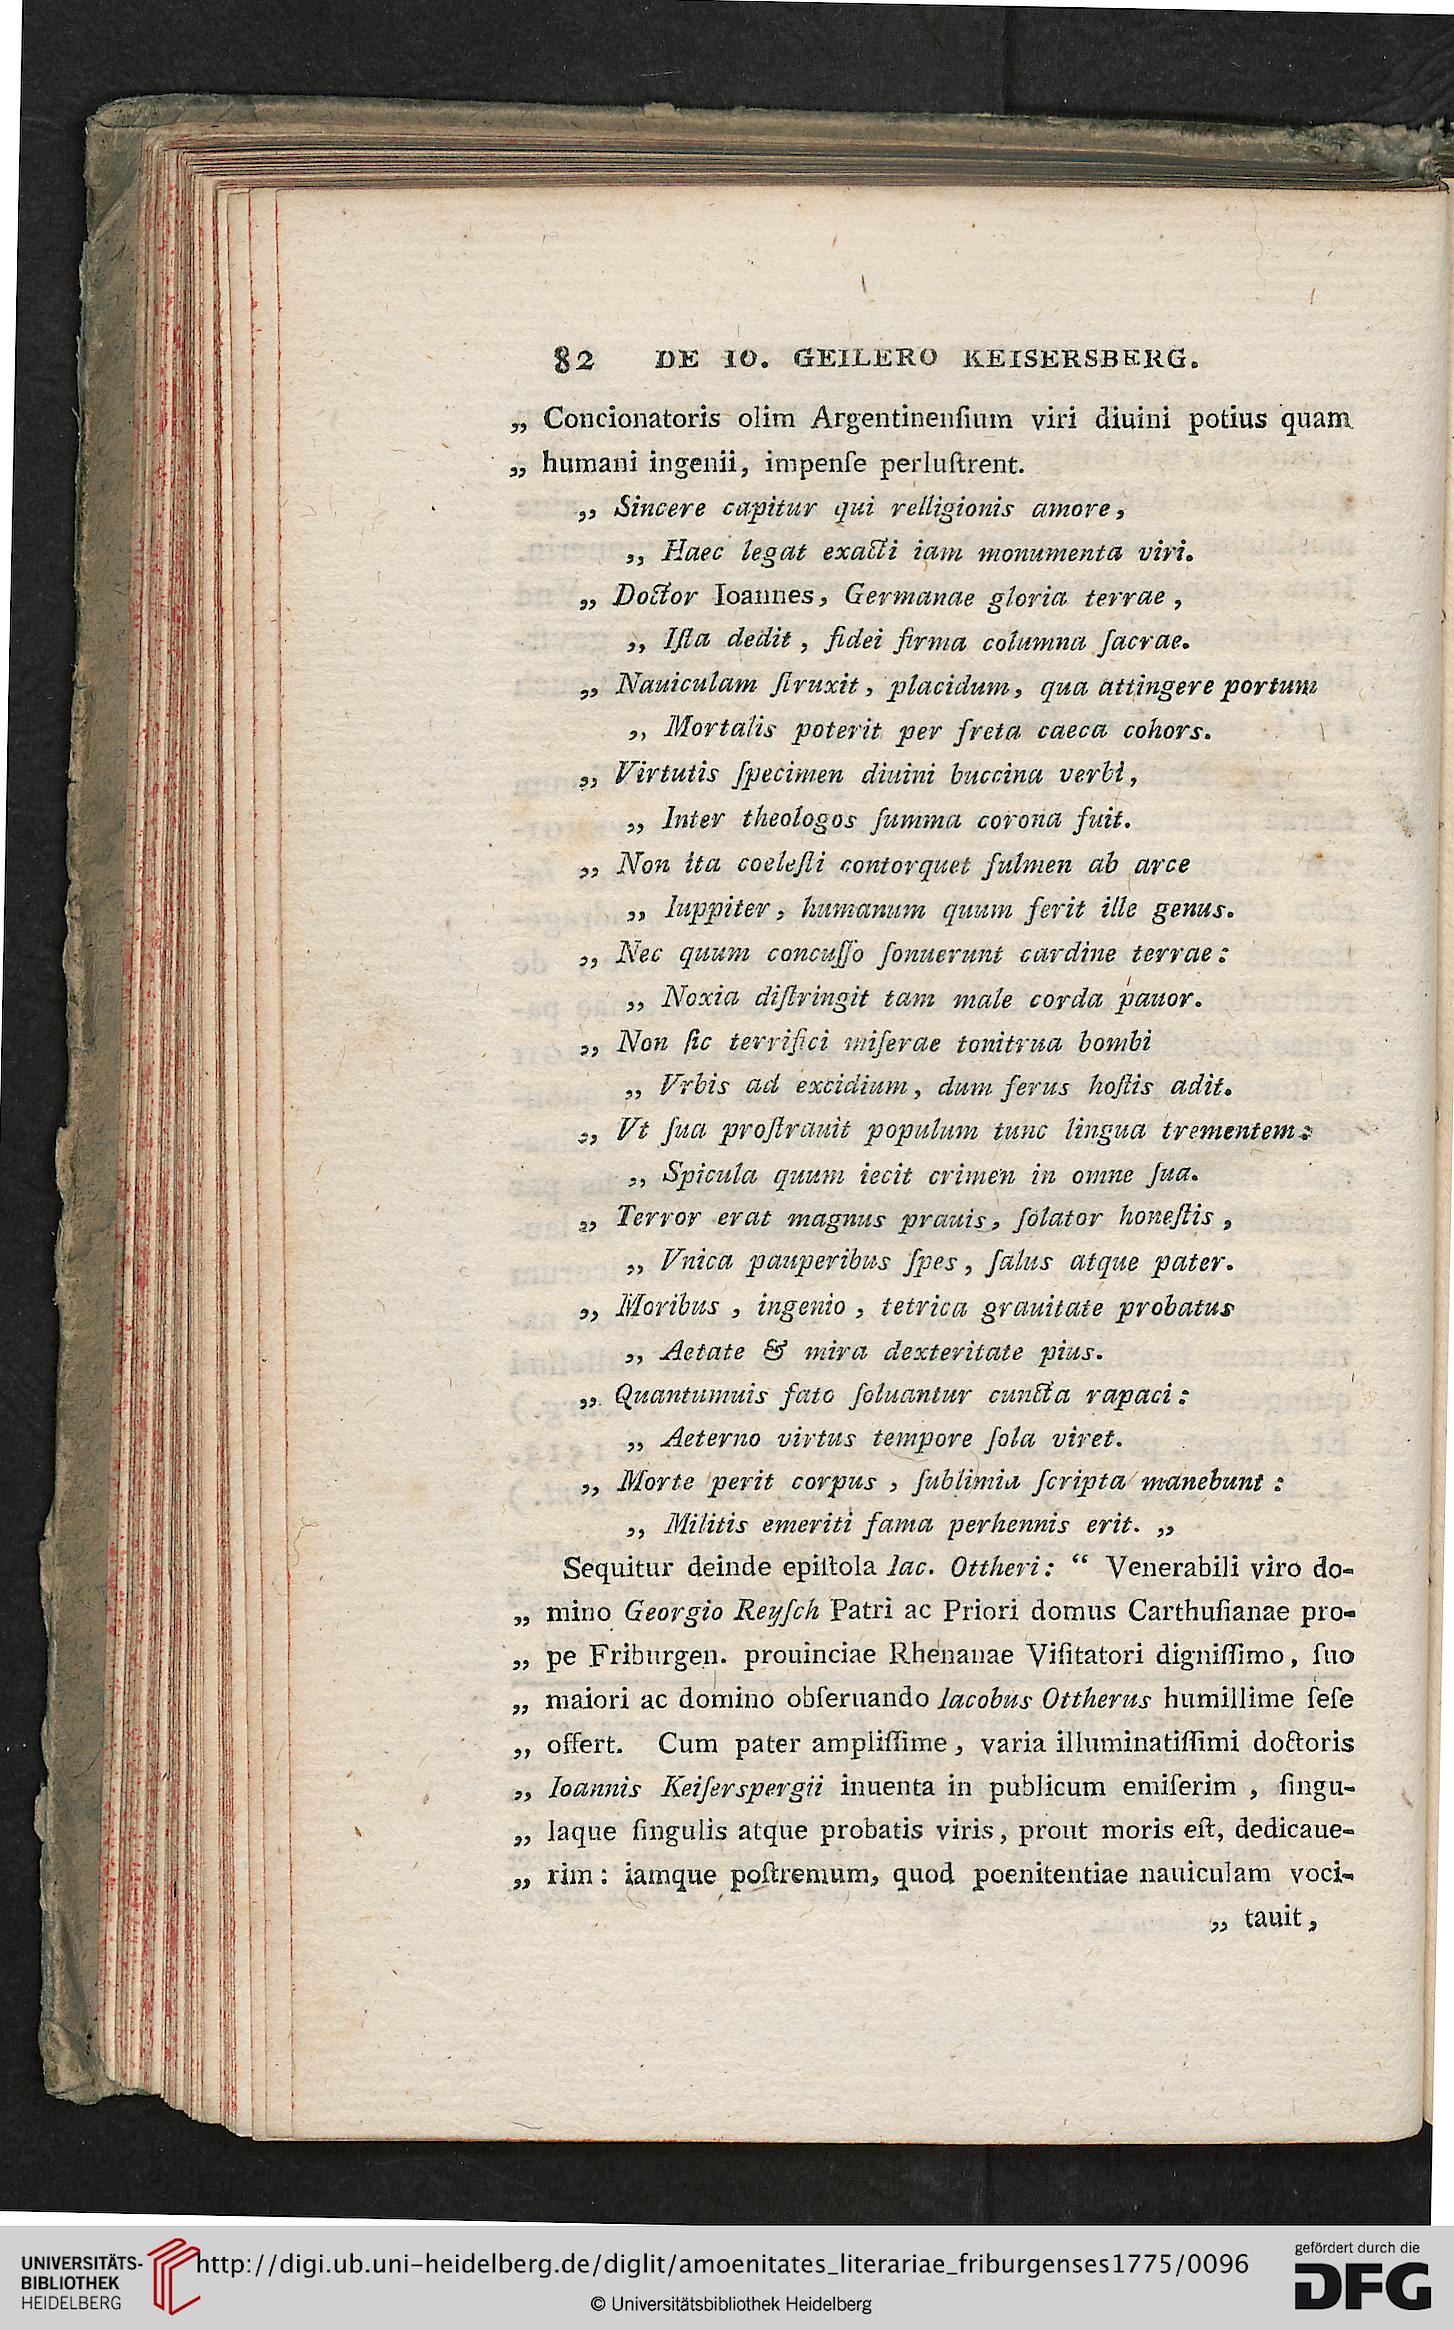 82 DE IO. GEILERO KEISERSBERG.
„ Concionatoris olim Argentinenſium viri diuini potius quam
„ humani ingenii, impenſe perluſtrent.
„ Sincere capitur qui relligionis amore,
„ Haec legat exacti iam monumenta viri.
„ Doctor Ioannes, Germanae gloria terrae,
„ Iſta dedit, fidei firma columna ſacrae.
„ Nauiculam ſtruxit, placidum, qua attingere portum
„ Mortalis poterit per freta caeca cohors.
„ Virtutis ſpecimen diuini buccina verbi,
„ Inter theologos ſumma corona fuit.
„ Non ita coeleſti contorquet fulmen ab arce
„ Iuppiter, humanum quum ferit ille genus.
„ Nec quum concuſſo ſonuerunt cardine terrae:
„ Noxia diſtringit tam male corda pauor.
„ Non ſic terrifici miſerae tonitrua bombi
„ Vrbis ad excidium, dum ferus hoſtis adit.
„ Vt ſua proſtrauit populum tunc lingua trementem:
„ Spicula quum iecit crimen in omne ſua.
„ Terror erat magnus prauis, ſolator honeſtis,
„ Vnica pauperibus ſpes, ſalus atque pater.
„ Moribus, ingenio, tetrica grauitate probatus
„ Aetate & mira dexteritate pius.
„ Quantumuis fato ſoluantur cuncta rapaci:
„ Aeterno virtus tempore ſola viret.
„ Morte perit corpus, ſublimia ſcripta manebunt:
„ Militis emeriti fama perhennis erit. „
Sequitur deinde epiſtola Iac. Ottheri: “ Venerabili viro do-
„ mino Georgio Reyſch Patri ac Priori domus Carthuſianae pro-
„ pe Friburgen. prouinciae Rhenanae Viſitatori digniſſimo, ſuo
„ maiori ac domino obſeruando Iacobus Ottherus humillime ſeſe
„ offert. Cum pater ampliſſime, varia illuminatiſſimi doctoris
„ Ioannis Keiſerspergii inuenta in publicum emiſerim, ſingu-
„ laque ſingulis atque probatis viris, prout moris eſt, dedicaue-
„ rim: iamque poſtremum, quod poenitentiae nauiculam voci-
„ tauit,
UNIVERSITÄTS-
BIBLIOTHEK
HEIDELBERG
http://digi.ub.uni-heidelberg.de/diglit/amoenitates_literariae_friburgenses1775/0096
© Universitätsbibliothek Heidelberg
gefördert durch die
DFG